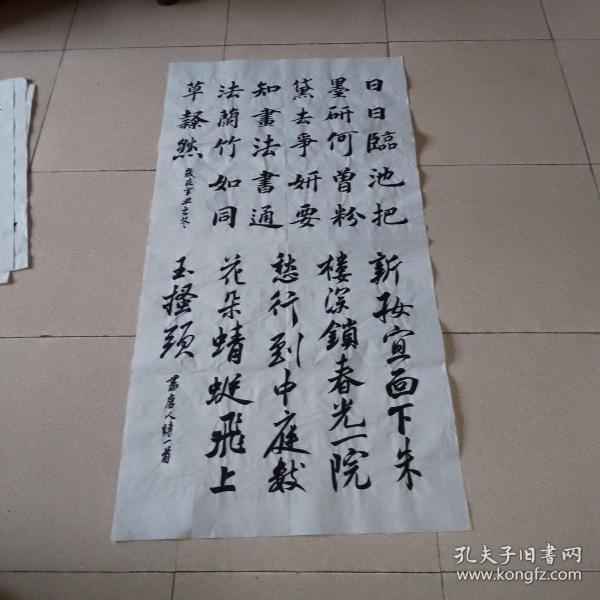 日日臨池把
墨研何曾粉
黛去爭妍要
知書法通
法蘭竹如同
草隸然
歲在辛丑之冬
新妝宜面下朱
樓深鎖春光一院
愁行到中庭數
花朵蜻蜓飛上
玉搔頭
書唐人詩一首
孔夫子旧书网
www.kongfz.com